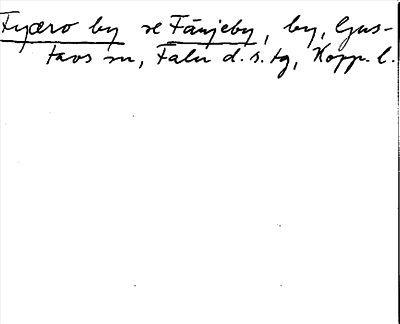 Fyæro by se Fänjeby, by, Gus-
tavs sn, Falu d.s. tg, Kopp. l.